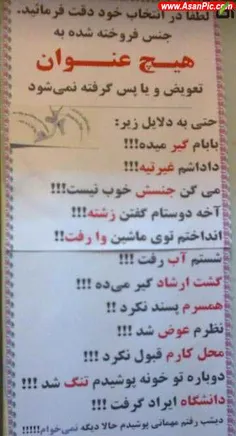 www.AsanPic.com
لطفا در انتخاب خود دقت فرمائید.
جنس فروخته شده به
هیچ عنوان
تعویض و یا پس گرفته نمی‌شود
حتی به دلایل زیر:
بابام گیر میده!!!
داداشم غیرتیه!!!
می گن جنسش خوب نیست!!!
آخه دوستام گفتن زشته!!!
انداختم توی ماشین وا رفت!!
شستم آب رفت !!!
گشت ارشاد گیر می‌ده !!!
همسرم پسند نکرد !!
نظرم عوض شد !!!
محل کارم قبول نکرد !!!
دوباره تو خونه پوشیدم تنگ شد !!!
دانشگاه ایراد گرفت !!!
دیشب رفتم مهمانی پوشیدم حالا دیگه نمی‌خوام!!!!!